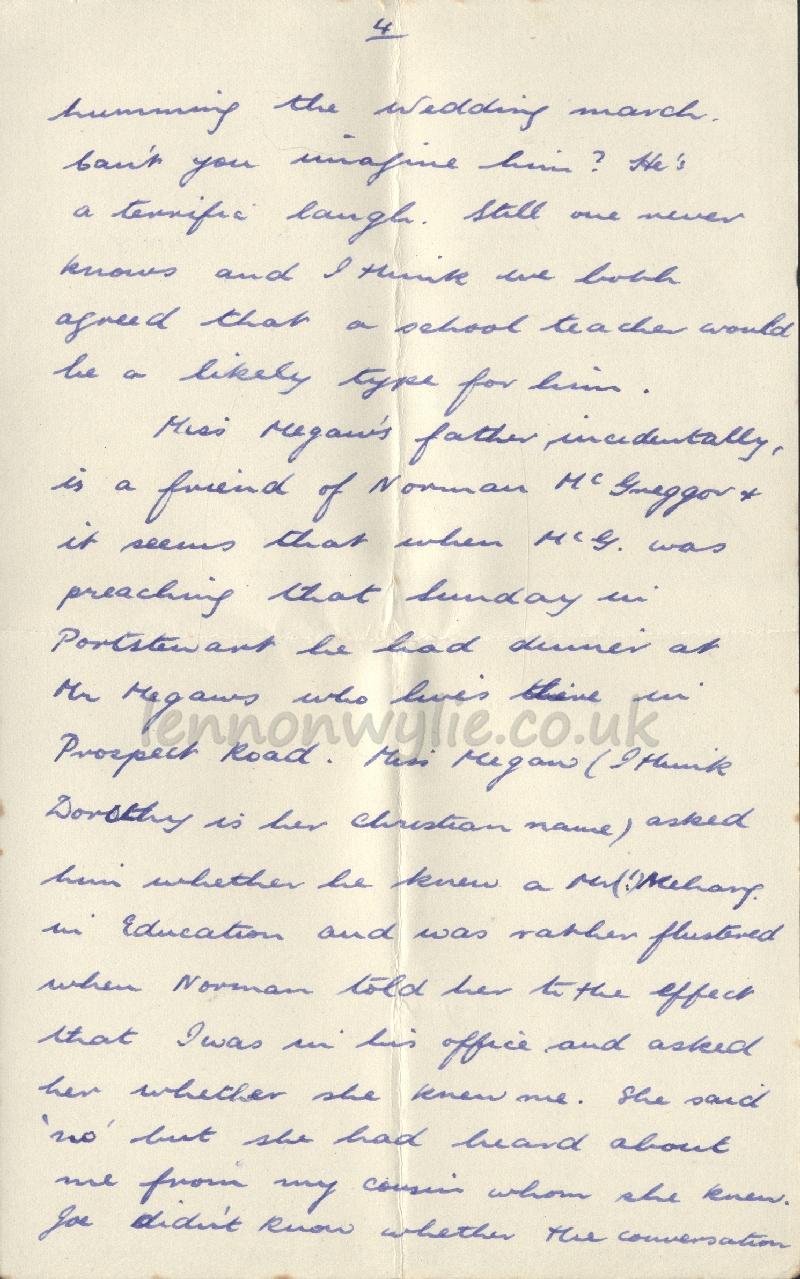 4
humming the Wedding march.
Can't you imagine him? He's
a terrific laugh. Still one never
knows and I think we both
agreed that a school teacher would
be a likely type for him.
Miss Megaw's father, incidentally,
is a friend of Norman McGreggor &
it seems that when McG. was
preaching that Sunday in
Portstewart he had dinner at
Mr Megaws who lives there in
lennonwylie.co.uk
Prospect Road. Miss Megaw (I think
Dorothy is her Christian name) asked
him whether he knew a Mr(!) Meharg
in Education and was rather flustered
when Norman told her to the effect
that I was in his office and asked
her whether she knew me. She said
'no' but she had heard about
me from my cousin whom she knew.
Joe didn't know whether the conversation